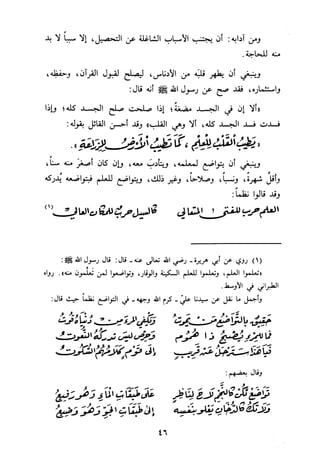 ومن آدابه: أن يجتنب الأسباب الشاغلة عن التحصيل، إلا سبباً لا بد
منه للحاجة.
وينبغي أن يطهر قلبَه من الأدناس، ليصلح لقبول القرآن، وحفظِه،
واستثماره، فقد صح عن رسول الله ﷺ أنه قال:
«ألا إن في الجسد مضغة؛ إذا صلحت صلح الجسد كله؛ وإذا
فسدت فسد الجسد كله، ألا وهي القلب» وقد أحسن القائل بقوله:
«يطيب القلب للعلم، كما تطيب الأرض للزراعة».
وينبغي أن يتواضع لمعلمه، ويتأدبَ معه، وإن كان أصغرَ منه سناً،
وأقلَّ شهرةً، ونسباً، وصلاحاً، وغير ذلك، ويتواضع للعلم فبتواضعه يُدركه
وقد قالوا نظماً:
العلم حرب للفتى المتعالي كالسيل حرب للمكان العالي (١)
(١) روي عن أبي هريرة - رضي الله تعالى عنه - قال: قال رسول الله ﷺ:
«تعلموا العلم، وتعلموا للعلم السكينة والوقار، وتواضعوا لمن تعلَّمون منه». رواه
الطبراني في الأوسط.
وأجمل ما نقل عن سيدنا علي - كرم الله وجهه - في التواضع نظماً حيث قال:
حقيق بالتواضع من يموت ويكفي المرء من دنياه قوت
فما للمرء يصبح ذا هموم وحرص ليس تدركه النعوت
فيا هذا سترحل عن قريب إلى قوم كلامهم السكوت
وقال بعضهم:
تواضع تكن كالنجم لاح لناظر على طبقات الماء وهو رفيع
ولا تك كالدخان يعلو بنفسه إلى طبقات الجو وهو وضيع
٤٦